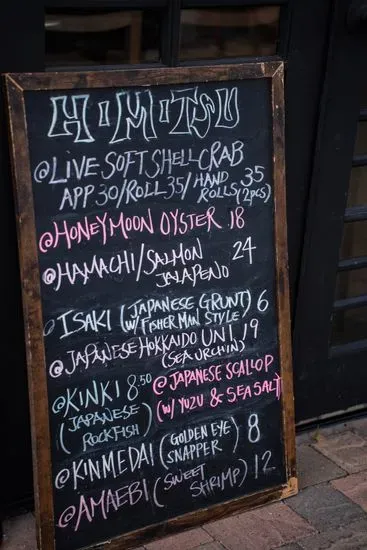 H•M•TSU
@LIVE SOFT SHELL CRAB
APP 30/ROLL 35/ HAND ROLLS (2pcs) 35
@HONEYMOON OYSTER 18
@HAMACHI/SALMON JALAPENO 24
@ISAKI (JAPANESE GRUNT) 6
(W/ FISHERMAN STYLE)
@JAPANESE HOKKAIDO UNI 19
(SEA URCHIN)
@KINKI 8.50
(JAPANESE
ROCKFISH)
@JAPANESE SCALLOP
(W/ YUZU & SEA SALT)
@KINMEDAI (GOLDEN EYE SNAPPER) 8
@AMAEBI (SWEET SHRIMP) 12